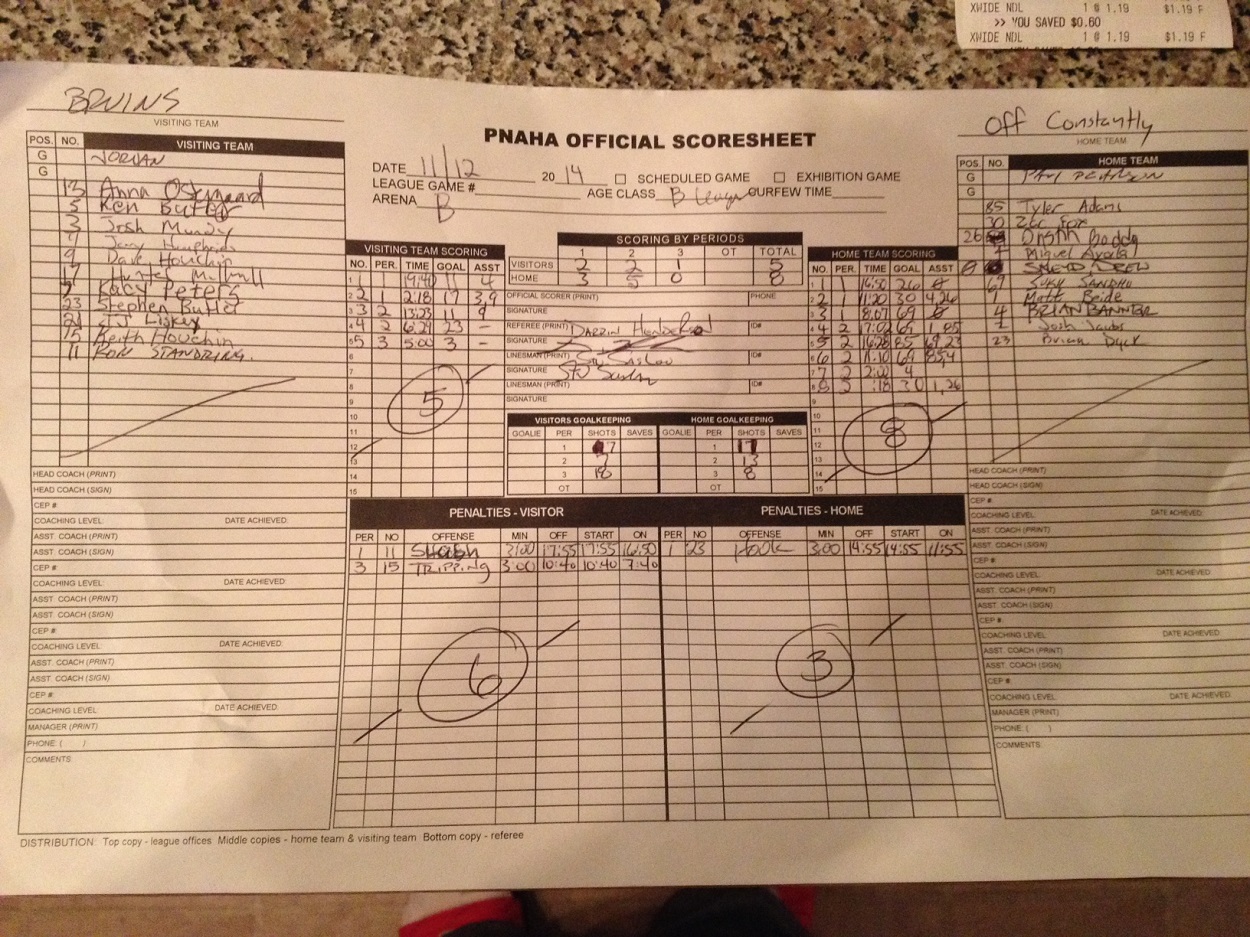 XWIDE NDL 1 @ 1.19 $1.19 F
>> YOU SAVED $0.60
XWIDE NDL 1 @ 1.19 $1.19 F
BRUINS
VISITING TEAM
POS. NO. VISITING TEAM
G JORDAN
G
13 Anna Ostergaard
5 Ken Butler
3 Josh Mundy
9 Dave Houchin
17 Hunter
Kacy Peters
23 Stephen Butler
21 TJ Liskey
15 Keith Houchin
11 RON STANDRING.
HEAD COACH (PRINT)
HEAD COACH (SIGN)
CEP #
COACHING LEVEL: DATE ACHIEVED:
ASST. COACH (PRINT)
ASST. COACH (SIGN)
CEP #
COACHING LEVEL: DATE ACHIEVED:
ASST. COACH (PRINT)
ASST. COACH (SIGN)
CEP #:
COACHING LEVEL: DATE ACHIEVED:
ASST. COACH (PRINT)
ASST. COACH (SIGN)
CEP #:
COACHING LEVEL: DATE ACHIEVED:
MANAGER (PRINT)
PHONE: ( )
COMMENTS:
PNAHA OFFICIAL SCORESHEET
DATE 11/12 2014 SCHEDULED GAME EXHIBITION GAME
LEAGUE GAME # AGE CLASS B League CURFEW TIME
ARENA B
VISITING TEAM SCORING
NO. PER. TIME GOAL ASST
1 1 19:40 11 4
2 2 2:18 17 3,9
3 2 13:23 11 9
4 2 6:29 23 -
5 3 5:00 3 -
6
7
8
9
10
11
12
13
14
15
5
SCORING BY PERIODS
1 2 3 OT TOTAL
VISITORS 2 2 1 5
HOME 3 5 0 8
OFFICIAL SCORER (PRINT) PHONE
SIGNATURE
REFEREE (PRINT) Darrin Henderson ID#
SIGNATURE
LINESMAN (PRINT) Stu ID#
SIGNATURE Stu
LINESMAN (PRINT) ID#
SIGNATURE
VISITORS GOALKEEPING HOME GOALKEEPING
GOALIE PER SHOTS SAVES GOALIE PER SHOTS SAVES
1 7 1 17
2 7 2 13
3 18 3 8
OT OT
HOME TEAM SCORING
NO. PER. TIME GOAL ASST
1 1 26
2 1 11:20 30 4,26
3 1 8:07 69
4 2 17:02 69 1,85
5 2 16:28 85 69,23
6 2 11:10 69 85,4
7 2 2:00 4
8 3 :18 30 1,26
9
10
11
12
13
14
15
8
PENALTIES - VISITOR
PER NO OFFENSE MIN OFF START ON
1 11 Slash 3:00 17:55 17:55 16:50
3 15 TRIPPING 3:00 10:40 10:40 7:40
6
PENALTIES - HOME
PER NO OFFENSE MIN OFF START ON
1 23 Hook 3:00 14:55 14:55 11:55
3
Off Constantly
HOME TEAM
POS. NO. HOME TEAM
G
G
85 Tyler Adams
30 Zac Fox
26 Boddy
Miguel Ayala
DREW
69 Suky Sandhu
1 Matt Beide
4 BRIAN BANNTER
2 Josh Jacobs
23 Brian Dyck
HEAD COACH (PRINT)
HEAD COACH (SIGN)
CEP #
COACHING LEVEL: DATE ACHIEVED:
ASST. COACH (PRINT)
ASST. COACH (SIGN)
CEP #
COACHING LEVEL: DATE ACHIEVED:
ASST. COACH (PRINT)
ASST. COACH (SIGN)
CEP #:
COACHING LEVEL: DATE ACHIEVED:
ASST. COACH (PRINT)
ASST. COACH (SIGN)
CEP #:
COACHING LEVEL: DATE ACHIEVED:
MANAGER (PRINT)
PHONE: ( )
COMMENTS:
DISTRIBUTION: Top copy - league offices Middle copies - home team & visiting team Bottom copy - referee